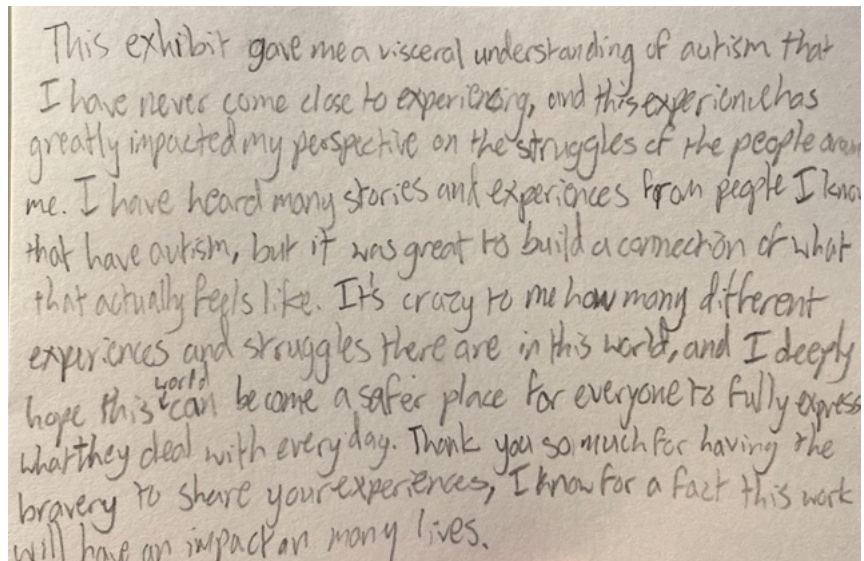 This exhibit gave me a visceral understanding of autism that
I have never come close to experiencing, and this experience has
greatly impacted my perspective on the struggles of the people aroun
me. I have heard many stories and experiences from people I know
that have autism, but it was great to build a connection of what
that actually feels like. It's crazy to me how many different
experiences and struggles there are in this world, and I deeply
hope this world can become a safer place for everyone to fully express
what they deal with everyday. Thank you so much for having the
bravery to share your experiences, I know for a fact this work
will have an impact on many lives.